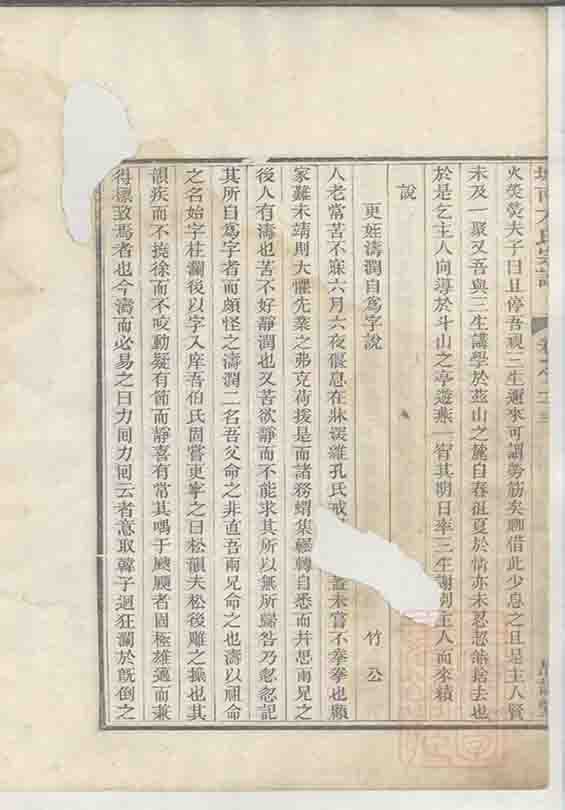 火熒熒夫子曰且停吾視三生邇來可謂勞筋矣聊借此少息之且是主人賢
未及一聚又吾與三生講學於茲山之麓自春徂夏於情亦未忍恝然捨去也
於是乞主人向導於斗山之亭遊燕一宵其明日率三生謝別主人而來績
說
更姪濤潤自爲字說
竹公
人老常苦不寐六月六夜偃息在牀深維孔氏戒 蓋未嘗不拳拳也顧
家難未靖則大懼先業之弗克荷撥是而諸務蝟集輾轉自悉而幷思兩兄之
後人有濤也苦不好靜潤也又苦欲靜而不能求其所以無所歸咎乃忽忽記
其所自爲字者而頗怪之濤潤二名吾父命之非直吾兩兄命之也濤以祖命
之名始字柱瀾後以字入庠吾伯氏固嘗更字之曰松韻夫松後雕之操也其
韻疾而不撓徐而不咬動疑有節而靜喜有常其喁于颼颼者固極雄適而兼
得標致焉者也今濤而必易之曰力囘力囘云者意取韓子迴狂瀾於旣倒之